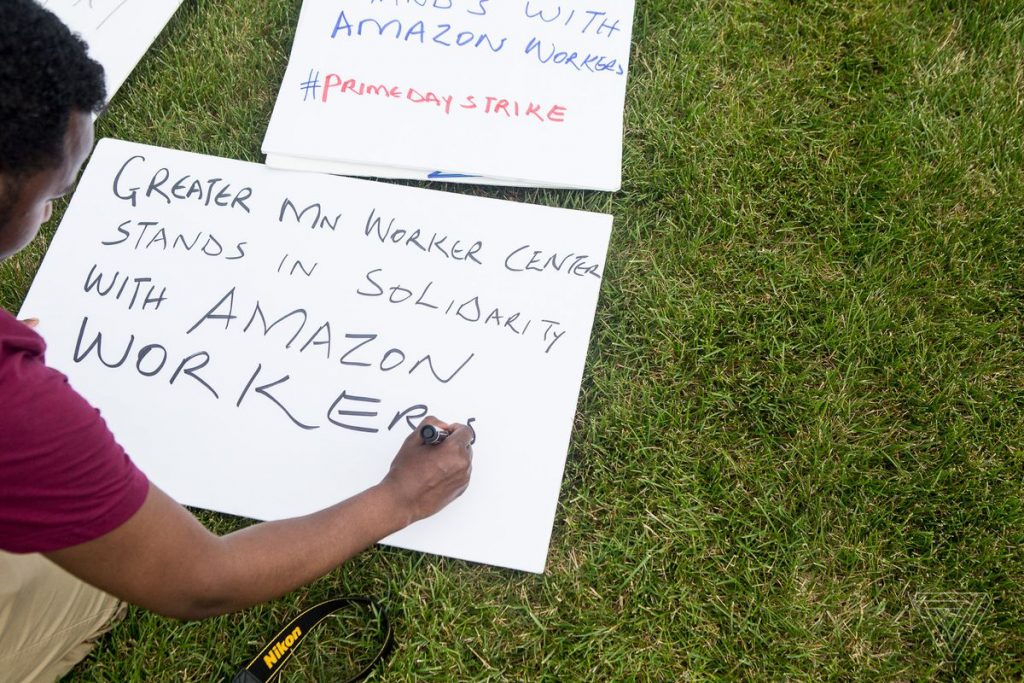 STANDS WITH
AMAZON WORKERS
#PRIMEDAYSTRIKE
GREATER MN WORKER CENTER
STANDS IN SOLIDARITY
WITH AMAZON
WORKERS
Nikon